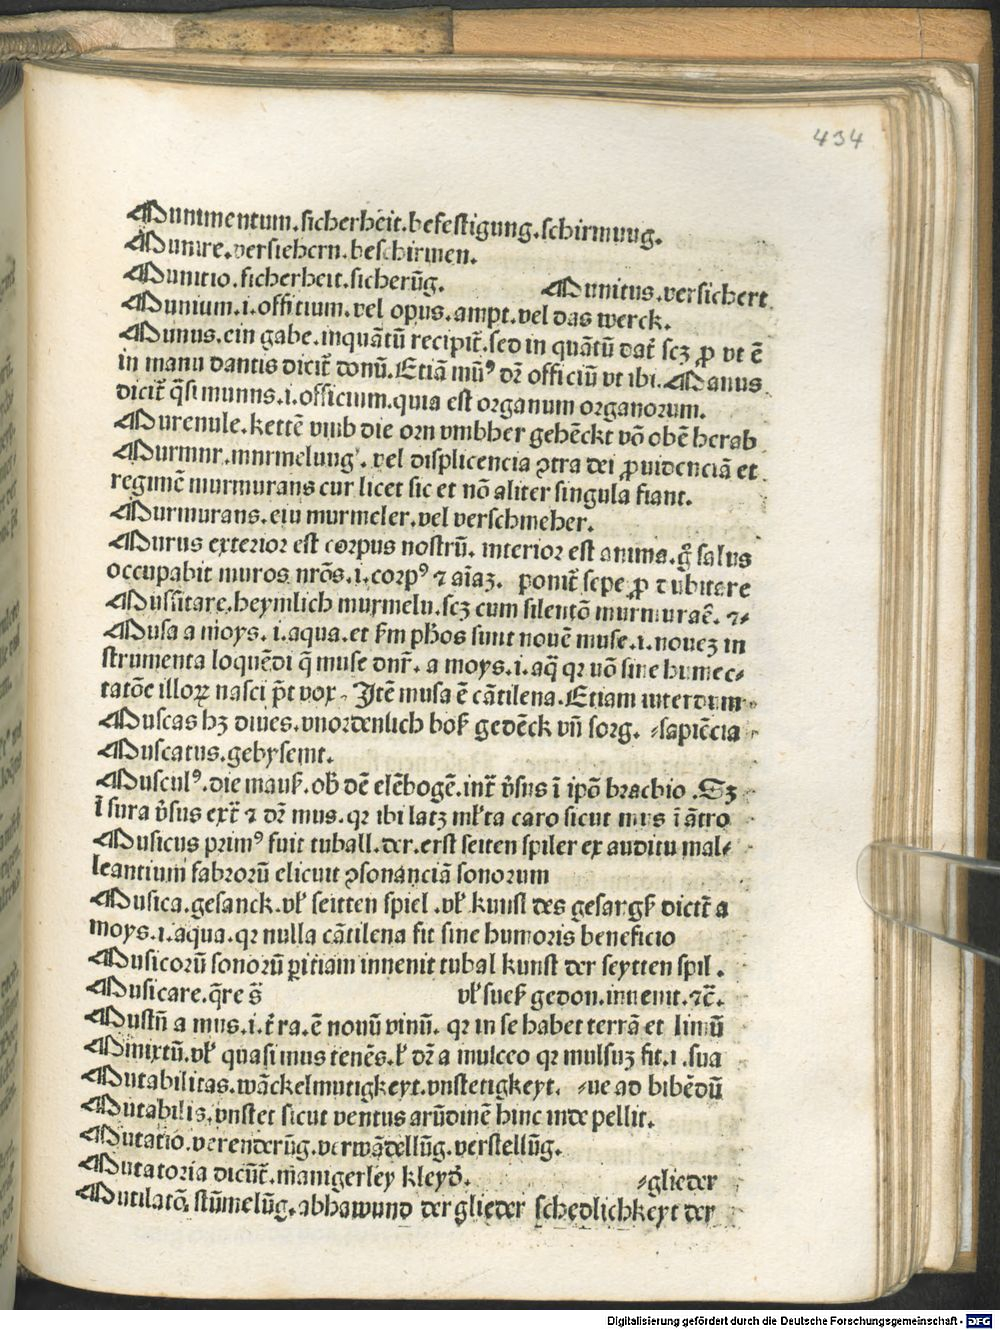 434
Munimentum.sicherheit.befestigung.schirmung.
Munire.versichern.beschirmen.
Municio.sicherheit.sicherūg. Munitus.versichert
Munium.i.offitium.vel opus.ampt.vel das werck.
Munus.ein gabe.inquātū recipit̄.sed in quātū dat̄ scꝫ ꝓ vt ē
in manu dantis dicit̄ donū.Etiā mūꝰ dꝛ officiū vt ibi.Manus
dicit̄ q̄si munns.i.officium.quia est organum organoꝛum.
Murenule.kettē vmb die oꝛn vmbher gehēckt vō obē herab
Murmnr.mnrmelung.vel displicencia ꝯtra dei ꝓuidenciā et
regimē murmurans cur licet sic et nō aliter singula fiant.
Murmurans.ein murmeler.vel verschmeher.
Murus exterioꝛ est coꝛpus nostrū.interioꝛ est anima.q̄ salus
occupabit muros nrōs.i.coꝛpꝰ ⁊ aīaꝫ. ponit̄ sepe ꝓ cubitare
Mussitare.heymlich murmeln.scꝫ cum silentō murmurar̄. ⁊⸗
Musa a moys.i.aqua.et km̄ ph̄os sunt nouē muse.i.nouez in
strumenta loquēdi q̄ muse dnr̄.a moys.i.aq̄ qꝛ nō sine humec⸗
tatōe illoꝝ nasci pt̄ vox. Itē musa ē cātilena.Etiam interdum⸗
Muscas hꝫ diues.vnoꝛdenlich boß gedēck vn̄ soꝛg. ⸗sapiēcia
Muscatus.gebysemt.
Musculꝰ.die mauß.ob dē elēbogē.int̄ v̄sus ī ipō brachio.Sꝫ
ī sura v̄sus ext̄ ⁊ dꝛ mus.qꝛ ibi latꝫ ml̄ta caro sicut mus ī ātro
Musicus primꝰ fuit tuball.der.erst seiten spiler ex auditu mal⸗
leantium fabroꝛū elicuit ꝯsonanciā sonoꝛum
Musica.gesanck.vl̄ seitten spiel.vl̄ kunst des gesangß dicit̄ a
moys.i.aqua.qꝛ nulla cātilena fit sine humoꝛis beneficio
Musicoꝛū sonoꝛū ꝑitiam innenit tubal kunst der seytten spil.
Musicare.q̄re s̄ vl̄ sueß gedon.inuenit.⁊c̄.
Mustū a mus.i.t̄ra.ē nouū vinū. qꝛ in se habet terrā et limū
Mmixtū.vl̄ quasi mus tenēs.l̄ dꝛ a mulceo qꝛ mulsuꝫ fit.i.sua
Mutabilitas.wāckelmutigkeyt.vnstetigkeyt. ⸗ue ad bibēdū
Mutabilis.vnstet sicut ventus arūdinē hinc inde pellit.
Mutatio.verenderūg.verwādellūg.verstellūg.
Mutatoꝛia dicūt̄.manigerley kleyd̄. ⸗glieder
Mutilatō.stūmelūg.abhawund der glieder schedlichkeyt der
Digitalisierung gefördert durch die Deutsche Forschungsgemeinschaft - DFG